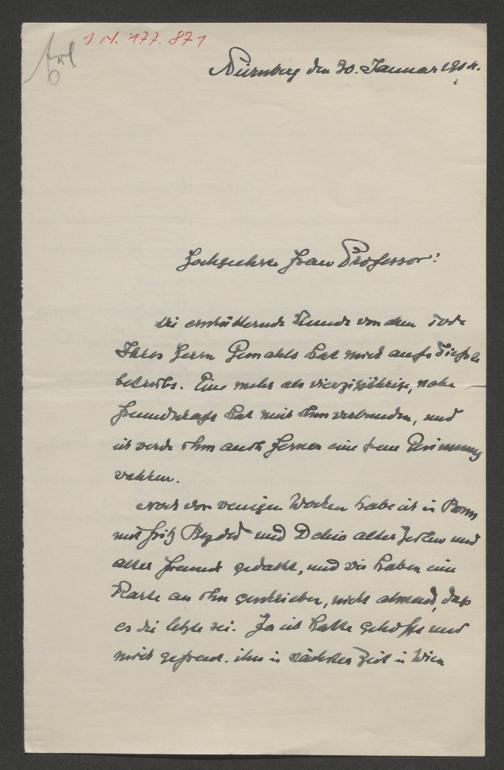 I N. 177.871
Nürnberg den 30. Januar 1914.
Hochgeehrte Frau Professor!
die erschütternde Kunde von dem Tode
Ihres Herrn Gemahls hat mich aufs Tiefste
betrübt. Eine mehr als vierzigjährige, nahe
Freundschaft hat mich ihm verbunden, und
ich werde ihm auch ferner eine treue Erinnerung
wahren.
Noch vor wenigen Wochen habe ich in Bonn
mit Fritz und Dehio alter Zeiten und
alter Freunde gedacht, und wir haben eine
Karte an ihn geschrieben, nicht ahnend, daß
es die letzte sei. Ja ich hatte gehofft und
mich gefreut, ihn in nächster Zeit in Wien